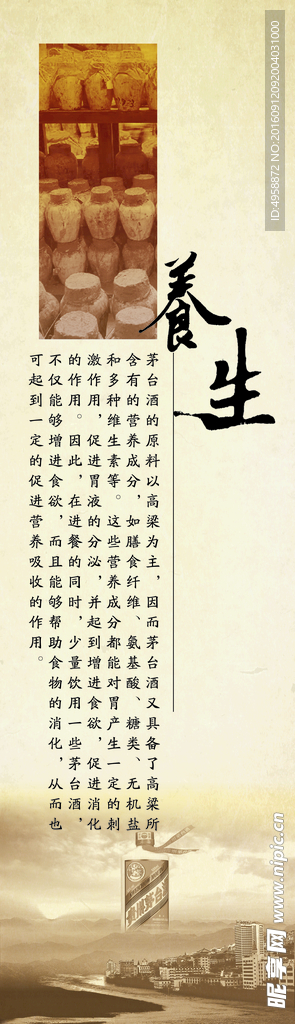 養生
茅台酒的原料以高粱为主，因而茅台酒又具备了高粱所
含有的营养成分，如膳食纤维、氨基酸、糖类、无机盐
和多种维生素等。这些营养成分都能对胃产生一定的刺
激作用，促进胃液的分泌，并起到增进食欲，促进消化
的作用。因此，在进餐的同时，少量饮用一些茅台酒，
不仅能够增进食欲，而且能够帮助食物的消化，从而也
可起到一定的促进营养吸收的作用。
贵州茅台
ID:4958872 NO:20160912092004031000
昵享网 www.nipic.cn